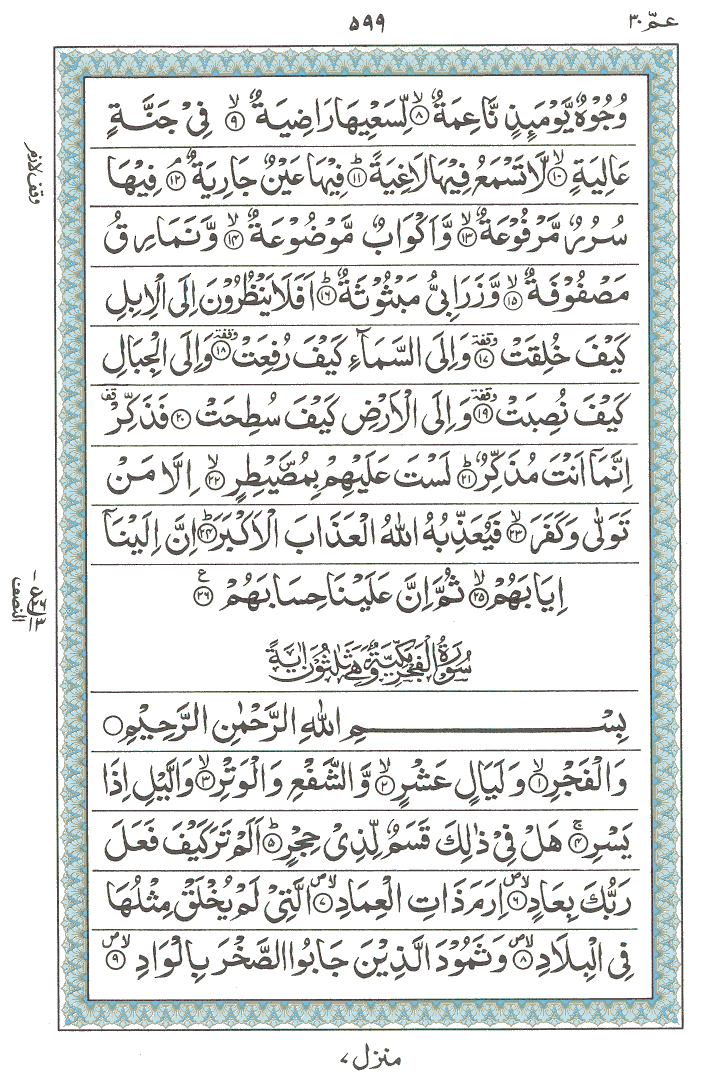 عمّ ۳۰
۵۹۹
وُجُوْهٌ يَّوْمَىِٕذٍ نَّاعِمَةٌ ۙ‏﴿۸﴾ لِّسَعْيِهَا رَاضِيَةٌ ۙ‏﴿۹﴾ فِيْ جَنَّةٍ
عَالِيَةٍ ۙ‏﴿۱۰﴾ لَّا تَسْمَعُ فِيْهَا لَاغِيَةً ؕ‏﴿۱۱﴾ فِيْهَا عَيْنٌ جَارِيَةٌ ۘ‏﴿۱۲﴾ فِيْهَا
سُرُرٌ مَّرْفُوْعَةٌ ۙ‏﴿۱۳﴾ وَّاَكْوَابٌ مَّوْضُوْعَةٌ ۙ‏﴿۱۴﴾ وَّنَمَارِقُ
مَصْفُوْفَةٌ ۙ‏﴿۱۵﴾ وَّزَرَابِيُّ مَبْثُوْثَةٌ ؕ‏﴿۱۶﴾ اَفَلَا يَنْظُرُوْنَ اِلَى الْاِبِلِ
كَيْفَ خُلِقَتْ ۥ وقفة‏﴿۱۷﴾ وَاِلَى السَّمَآءِ كَيْفَ رُفِعَتْ وقفة‏﴿۱۸﴾ وَاِلَى الْجِبَالِ
كَيْفَ نُصِبَتْ وقفة‏﴿۱۹﴾ وَاِلَى الْاَرْضِ كَيْفَ سُطِحَتْ ‏﴿۲۰﴾ فَذَكِّرْ قف
اِنَّمَاۤ اَنْتَ مُذَكِّرٌ ؕ‏﴿۲۱﴾ لَسْتَ عَلَيْهِمْ بِمُصَۜيْطِرٍ ۙ‏﴿۲۲﴾ اِلَّا مَنْ
تَوَلّٰى وَكَفَرَ ۙ‏﴿۲۳﴾ فَيُعَذِّبُهُ اللّٰهُ الْعَذَابَ الْاَكْبَرَ ؕ‏﴿۲۴﴾ اِنَّ اِلَيْنَاۤ
اِيَابَهُمْ ۙ‏﴿۲۵﴾ ثُمَّ اِنَّ عَلَيْنَا حِسَابَهُمْ ع‏﴿۲۶﴾
سُوْرَةُ الْفَجْرِ مَكِّيَّةٌ وَّهِيَ ثَلٰثُوْنَ اٰيَةً
بِسْمِ اللّٰهِ الرَّحْمٰنِ الرَّحِيْمِ
وَالْفَجْرِ ۙ‏﴿۱﴾ وَلَيَالٍ عَشْرٍ ۙ‏﴿۲﴾ وَّالشَّفْعِ وَالْوَتْرِ ۙ‏﴿۳﴾ وَالَّيْلِ اِذَا
يَسْرِ ۚ‏﴿۴﴾ هَلْ فِيْ ذٰلِكَ قَسَمٌ لِّذِيْ حِجْرٍ ؕ‏﴿۵﴾ اَلَمْ تَرَ كَيْفَ فَعَلَ
رَبُّكَ بِعَادٍ ۙ ص‏﴿۶﴾ اِرَمَ ذَاتِ الْعِمَادِ ۙ ص‏﴿۷﴾ الَّتِيْ لَمْ يُخْلَقْ مِثْلُهَا
فِي الْبِلَادِ ۙ ص‏﴿۸﴾ وَثَمُوْدَ الَّذِيْنَ جَابُوا الصَّخْرَ بِالْوَادِ ۙ ص‏﴿۹﴾
منزل ۷
وقف لازم
النصف